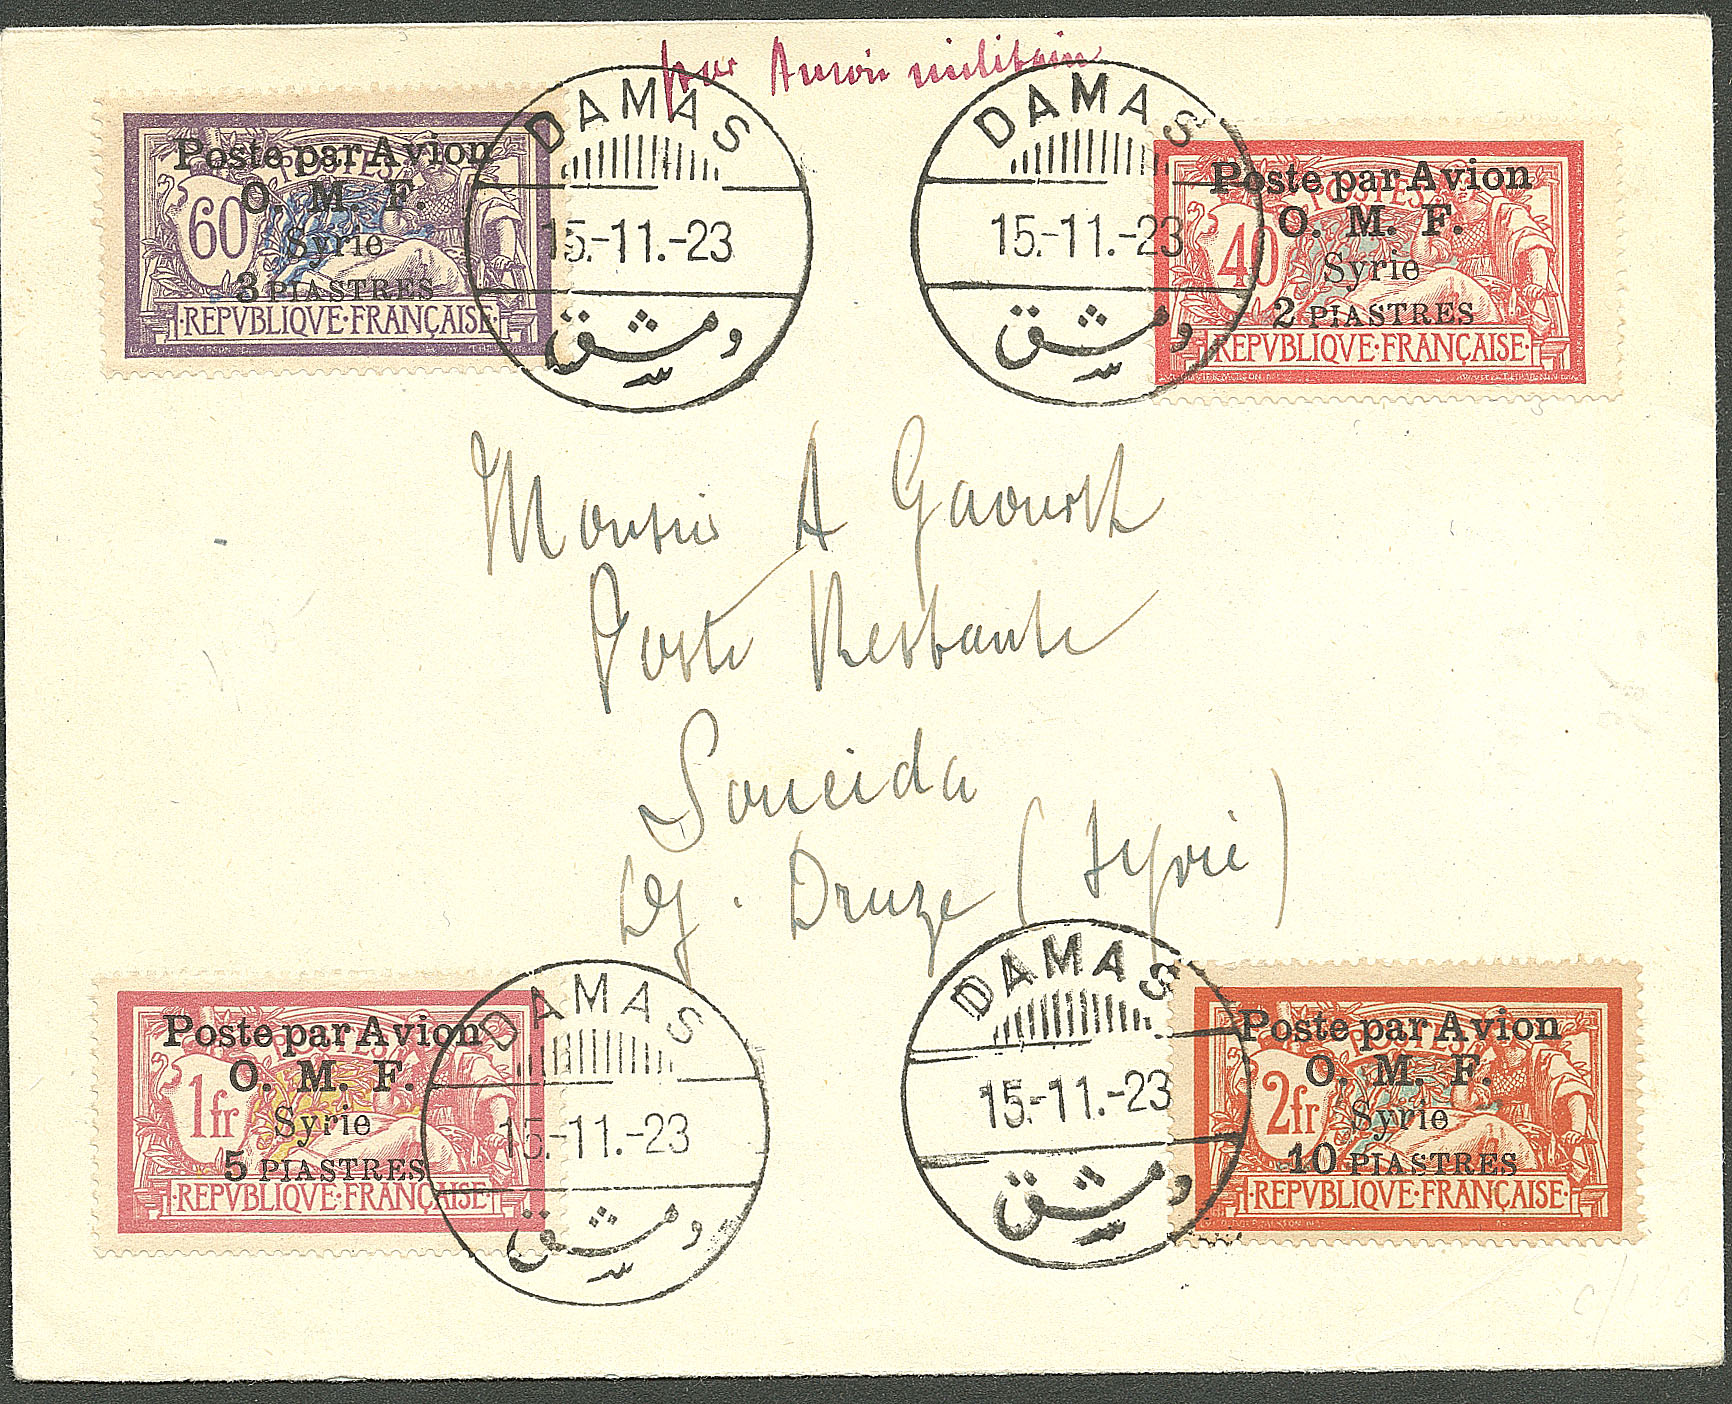 par Avion militaire
POSTES
Poste par Avion
O. M. F.
60
Syrie
3 PIASTRES
·REPVBLIQVE·FRANÇAISE·
DAMAS
15.-11.-23
دمشق
DAMAS
15.-11.-23
دمشق
POSTES
Poste par Avion
O. M. F.
40
Syrie
2 PIASTRES
REPVBLIQVE·FRANÇAISE·
Monsieur A
Poste Restante
Soueida
Dj. Druze (Syrie)
POSTES
Poste par Avion
O. M. F.
1fr
Syrie
5 PIASTRES
·REPVBLIQVE·FRANÇAISE
DAMAS
15.-11.-23
دمشق
DAMAS
15.-11.-23
دمشق
Poste par Avion
O. M. F.
2fr
Syrie
10 PIASTRES
·REPVBLIQVE·FRANÇAISE·